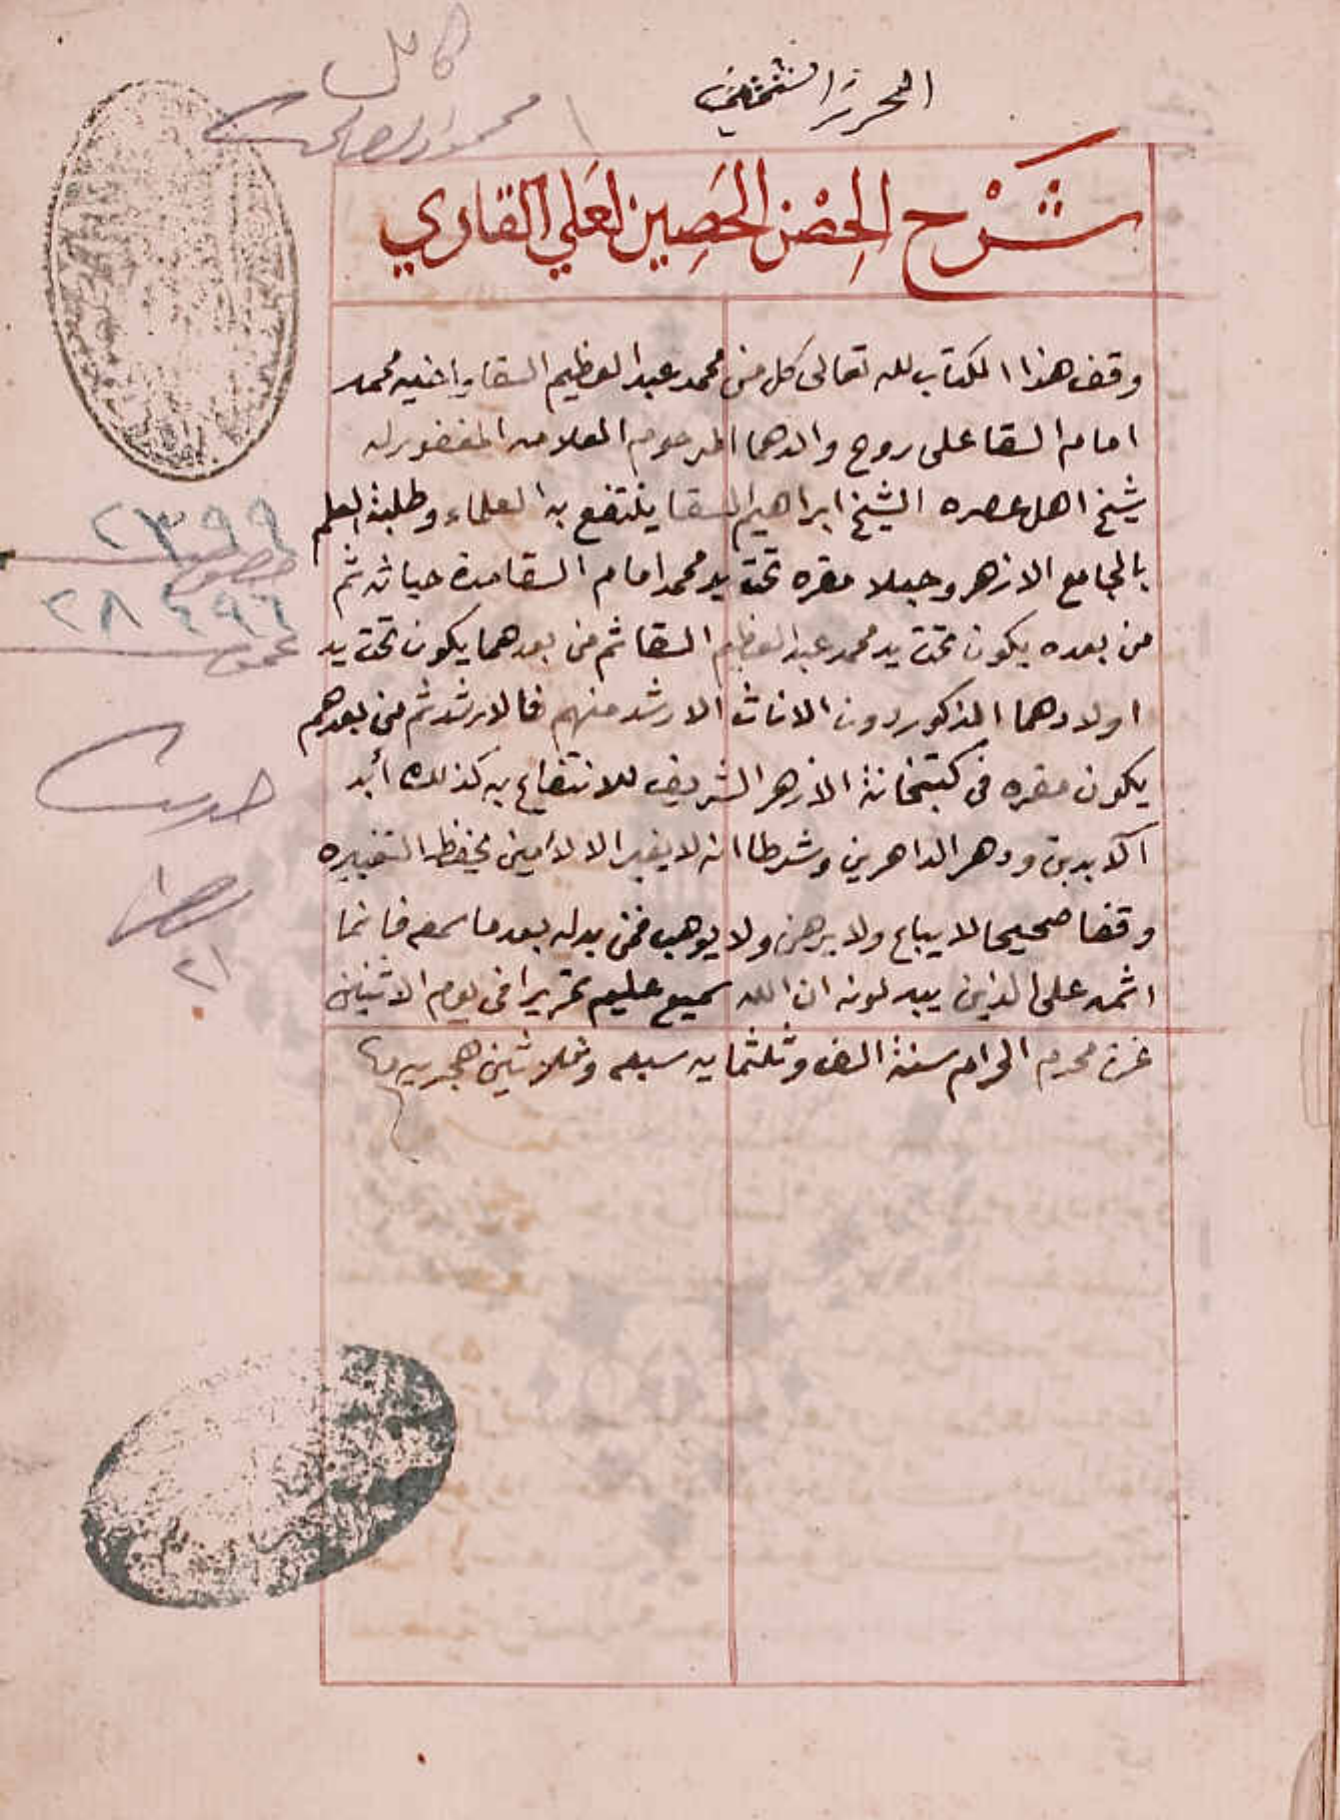 كامل
شَرْح الحِصْن الحَصِين لعَلي القاري
وقف هذا الكتاب لله تعالى كل من محمد عبد العظيم السقا واخيه محمد
امام السقا على روح والدهما المرحوم العلامه المغفور له
شيخ اهل عصره الشيخ ابراهيم السقا ينتفع به العلماء وطلبة العلم
بالجامع الازهر وجعلا مقره تحت يد محمد امام السقا مدة حياته ثم
من بعده يكون تحت يد محمد عبد العظيم السقا ثم من بعدهما يكون تحت يد
اولادهما الذكور دون الاناث الارشد منهم فالارشد ثم من بعدهم
يكون مقره في كتبخانة الازهر الشريف للانتفاع به كذلك أبد
الآبدين ودهر الداهرين وشرطا انه لا يغير الا لأمين يحفظه
وقفا صحيحا لا يباع ولا يرهن ولا يوهب فمن بدله بعد ما سمعه فانما
اثمه على الذين يبدلونه ان الله سميع عليم تحريرا في يوم الاثنين
غرة محرم الحرام سنة الف وثلثمايه سبعه وثلاثين هجريه
٢٣٩٩
خصوص
٢٨٤٩٦
عموم
حديث
٢١